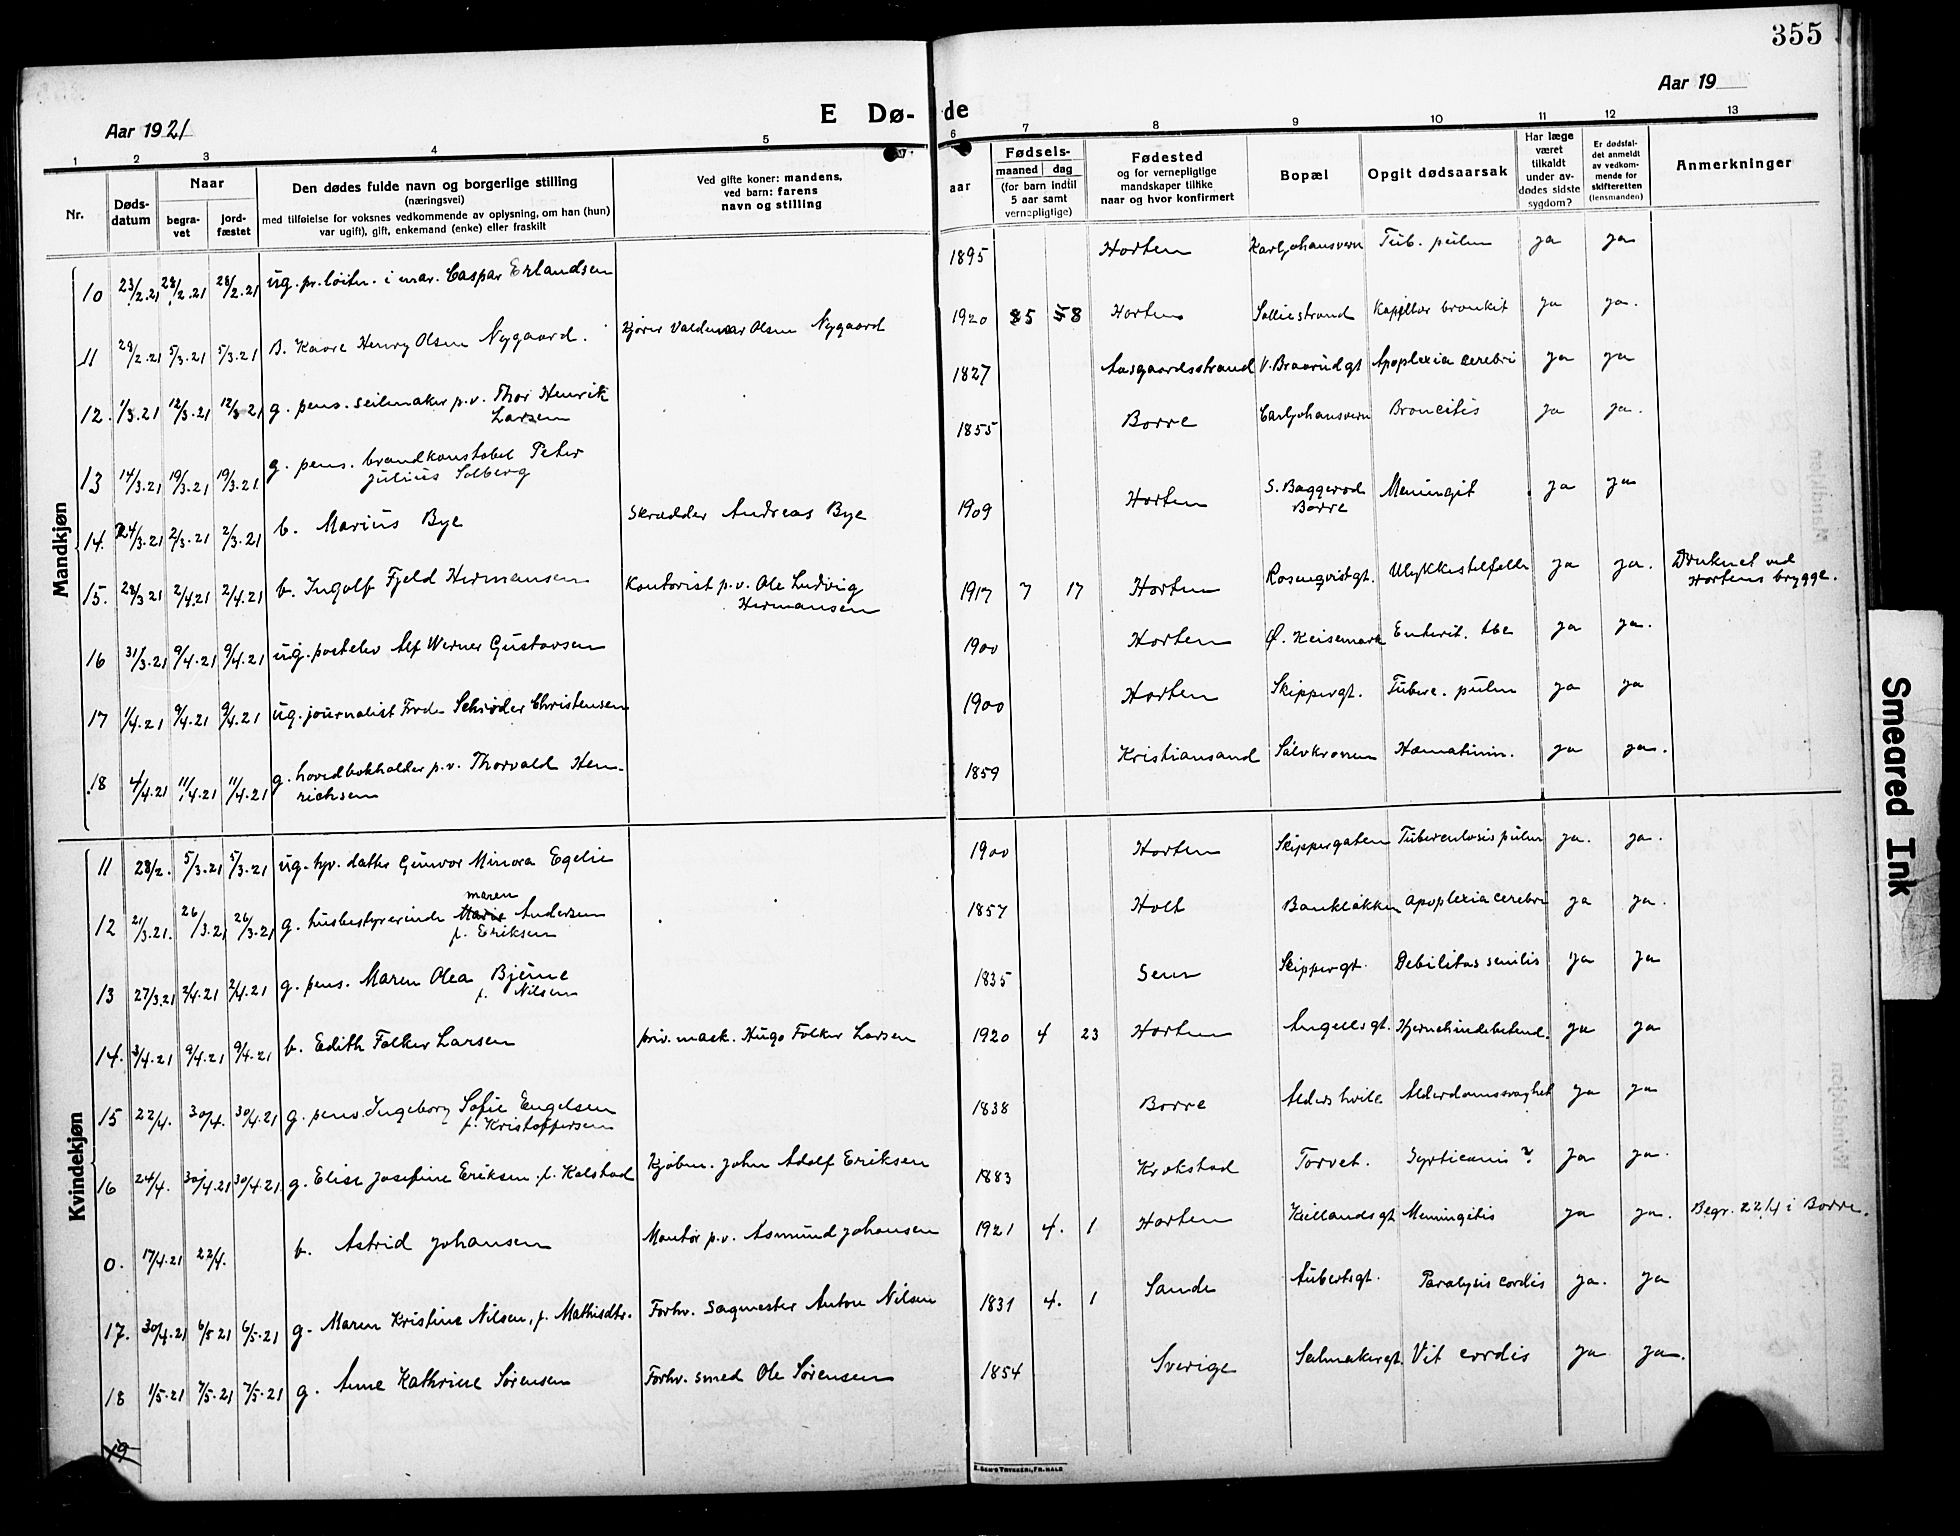 355
Aar 1921
E Dø- de
Aar 19
1 2 3 4 5 6 7 8 9 10 11 12 13
Nr.
Døds-
datum
Naar
begra-
vet
jord-
fæstet
Den dødes fulde navn og borgerlige stilling
(næringsvei)
med tilføielse for voksnes vedkommende av oplysning, om han (hun)
var ugift), gift, enkemand (enke) eller fraskilt
Ved gifte koner: mandens,
ved barn: farens
navn og stilling
Fødsels-
aar
maaned dag
(for barn indtil
5 aar samt
vernepligtige)
Fødested
og for vernepligtige
mandskaper tillike
naar og hvor konfirmert
Bopæl
Opgit dødsaarsak
Har læge
været
tilkaldt
under av-
dødes sidste
sygdom?
Er dødsfal-
det anmeldt
av vedkom-
mende for
skifteretten
(lensmanden)
Anmerkninger
Mandkjøn
10 23/2.21 28/2.21 28/2.21 ug. pr. løitn. i mar. Caspar Erlandsen 1895 Horten Karljohansvern Tub. pulm ja ja
11 29/2.21 5/3.21 5/3.21 B. Kaare Henry Olsen Nygaard. Kjører Valdemar Olsen Nygaard 1920 5 8 Horten Solliestrand Kapillær bronkit ja ja.
12. 1/3.21 12/3.21 12/3 21 g. pens. seilmaker p.v. Thor Henrik
Larsen
1827 Aasgaardsstrand V. Braarudgt Apoplexia cerebri ja ja
13 14/3.21 19/3.21 19/3.21 g. pens. brandkonstabel Peter
Julius Solberg
1855 Borre Carljohansvern Broncitis ja ja.
14. 24/3.21 2/3.21 2/3.21 b. Marius Bye Skrædder Andreas Bye 1909 Horten S. Baggerød
Borre
Meningit ja ja
15. 28/3 21 2/4.21 2/4.21 b. Ingolf Fjeld Hermansen Kontorist p.v. Ole Ludvig
Hermansen
1917 7 17 Horten Rosenqvistgt. Ulykkestilfelle ja ja. Druknet ved
Hortens brygge.
16 31/3.21 9/4.21 9/4.21 ug. postelev Alf Werner Gustavsen 1900 Horten Ø. Keisemark Enterit. tbc ja ja.
17 1/4.21 9/4.21 9/4.21 ug. journalist Schrøder Christensen 1900 Horten Skippergt. Tuberc. pulm ja ja
18 4/4.21 11/4.21 11/4.21 g. hovedbokholder p.v. Thorvald Hen-
richsen
1859 Kristiansand Sølvkronen ja ja.
Kvindekjøn
11 28/2. 5/3.21 5/3.21 ug. hjv. datter Gunvor Minora Egelie 1900 Horten Skippergaten Tuberculosis pulm ja. ja.
maren
12 21/3.21. 26/3.21 26/3.21 g. husbestyrerinde Marie Andersen
f. Eriksen
1857 Holt Bankløkken apoplexia cerebri ja ja.
13 27/3.21 2/4.21 2/4.21 g. pens. Maren Olea Bjerme
f. Nilsen
1835 Sem Skippergt. Debilitas senilis ja ja
14. 3/4.21 9/4.21 9/4.21 b. Edith Folker Larsen priv. mask. Hugo Folker Larsen 1920 4 23 Horten Angellsgt. Hjernehindebetænd. ja ja
15 22/4. 30/4. 30/4.21 g. pens. Ingeborg Sofie Engelsen
f. Kristoffersen
1838 Borre Aldershvile Alderdomssvaghet ja ja
16 24/4. 30/4.21 30/4.21 g. Elise Josefine Eriksen f. Kolstad Kjøbm. John Adolf Eriksen 1883 Krokstad Torvet. ja ja.
0. 17/4.21 22/4. b. Astrid Johansen Montør p.v. Asmund Johansen 1921 4. 1 Horten Kiellandsgt Meningitis ja ja. Begr. 22/4 i Borre.
17. 30/4.21 6/5 21 6/5.21 g. Maren Kristine Nilsen, f. Mathisdtr. Forhv. Sagmester Anton Nilsen 1831 4. 1 Sande Aubertsgt. Paralysis cordis ja. ja
18 1/5.21 7/5.21 7/5.21 g. Anne Kathrine Sørensen Forhv. smed Ole Sørensen 1854 Sverige Seilmakergt. Vit cordis ja ja.
19
Smeared Ink